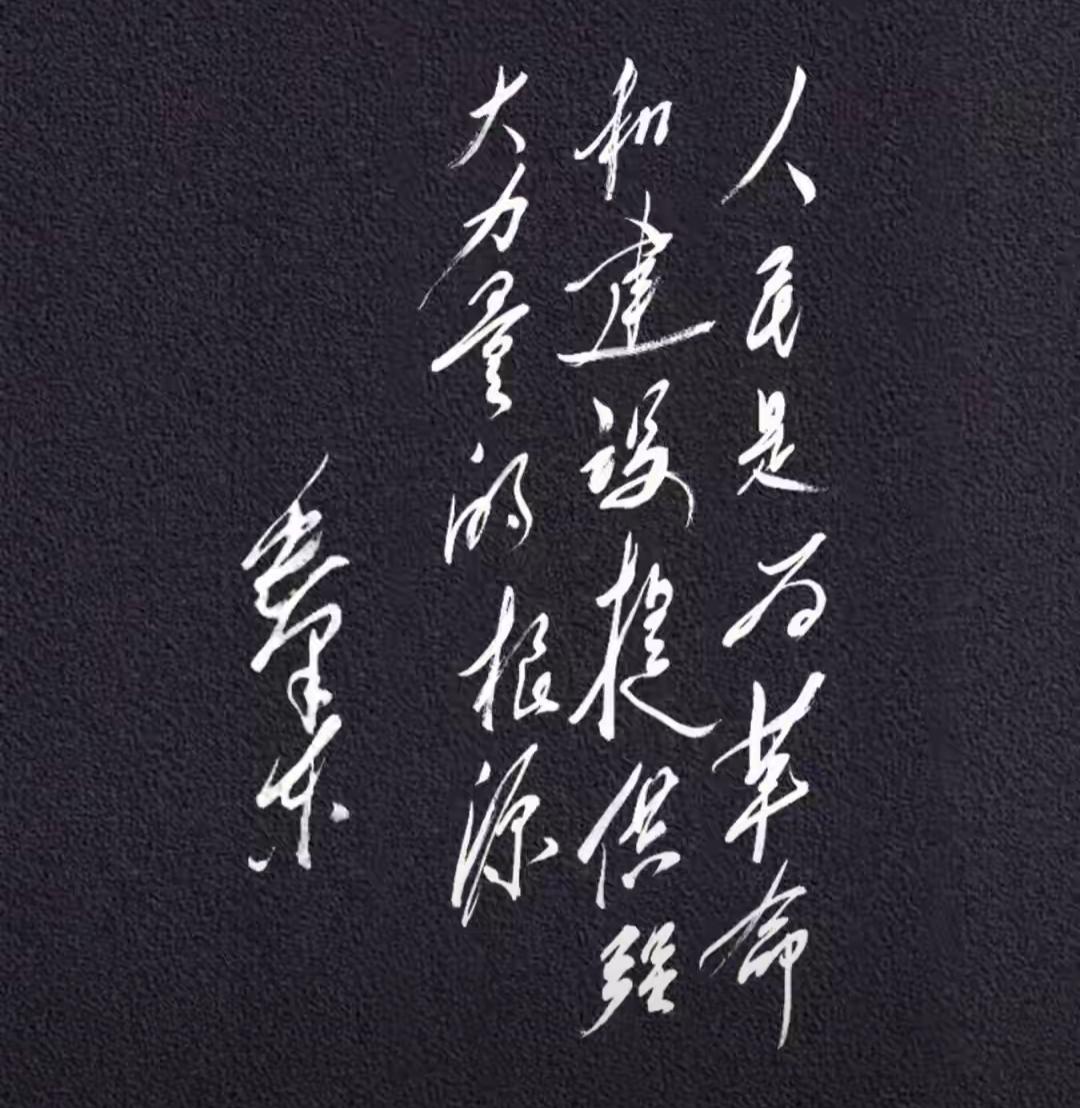 人民是为革命
和建设提供强
大力量的根源
毛泽东